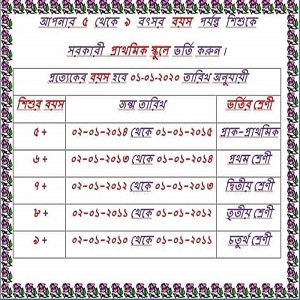 আপনার ৫ থেকে ৯ বৎসর বয়স পর্যন্ত শিশুকে
সরকারী প্রাথমিক স্কুলে ভর্তি করুন।
প্রত্যেকের বয়স হবে ০১-০১-২০২০ তারিখ অনুযায়ী
শিশুর বয়স জন্ম তারিখ ভর্তির শ্রেণী
৫ + ০২-০১-২০১৪ থেকে ০১-০১-২০১৫ প্রাক-প্রাথমিক
৬ + ০২-০১-২০১৩ থেকে ০১-০১-২০১৪ প্রথম শ্রেণী
৭ + ০২-০১-২০১২ থেকে ০১-০১-২০১৩ দ্বিতীয় শ্রেণী
৮ + ০২-০১-২০১১ থেকে ০১-০১-২০১২ তৃতীয় শ্রেণী
৯ + ০২-০১-২০১০ থেকে ০১-০১-২০১১ চতুর্থ শ্রেণী